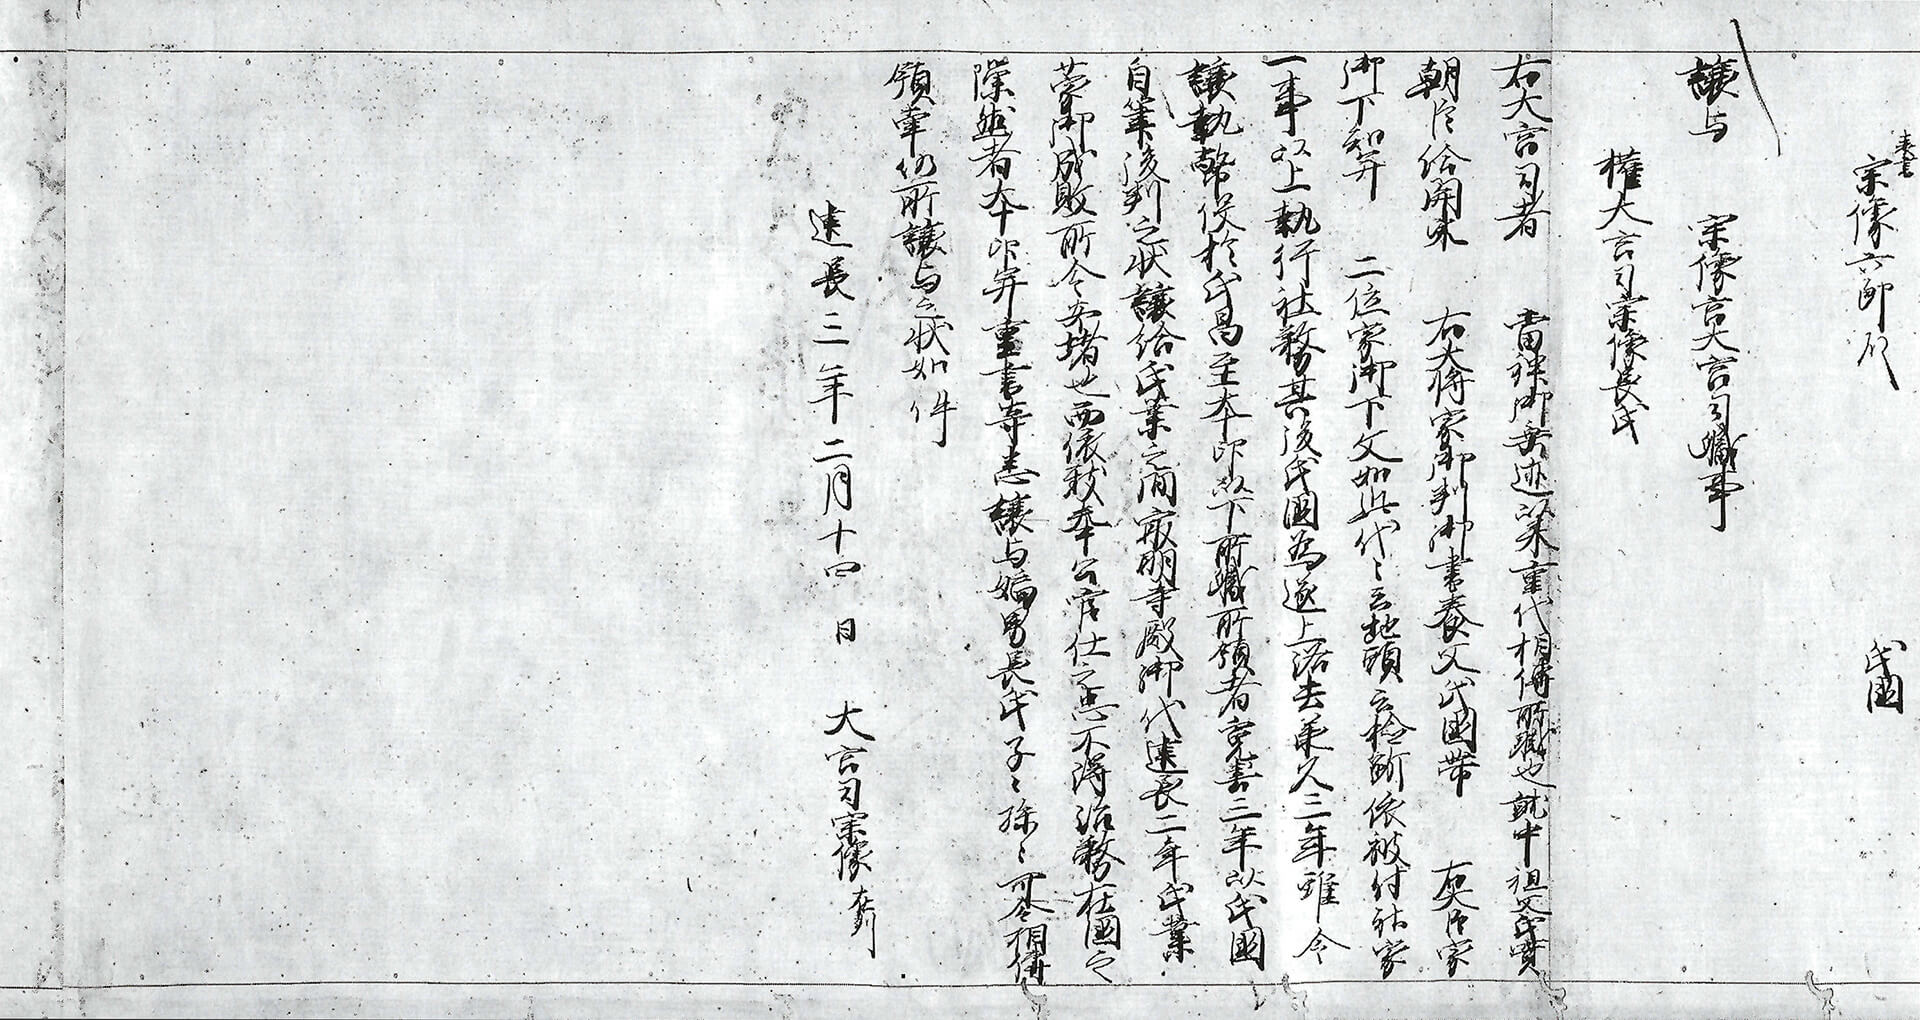 表書
宗像六郎殿 氏國
讓与 宗像宮大宮司職事
權大宮司宗像長氏
右大宮司者 當社御垂迹以来重代相傳所職也就中祖父氏實
朝臣給開東 右大将家御判御書養父氏國帯 右大臣家
御下知并 二位家御下文如此代〻云地頭云検断依被付社家
一事以上執行社務其後氏國為遂上洛去承久三年雖令
讓執幣使於氏昌至本印以下所職所領者寛喜三年以氏國
自筆後判之状讓給氏業之間最明寺殿御代建長二年氏業
蒙御成敗所令安堵也而依致奉公官仕之忠不得治務在國之
隙然者本印并重書等悉讓与嫡男長氏子〻孫〻可令相傳
領掌仍所讓与之状如件
建長三年二月十四日 大宮司宗像 在判